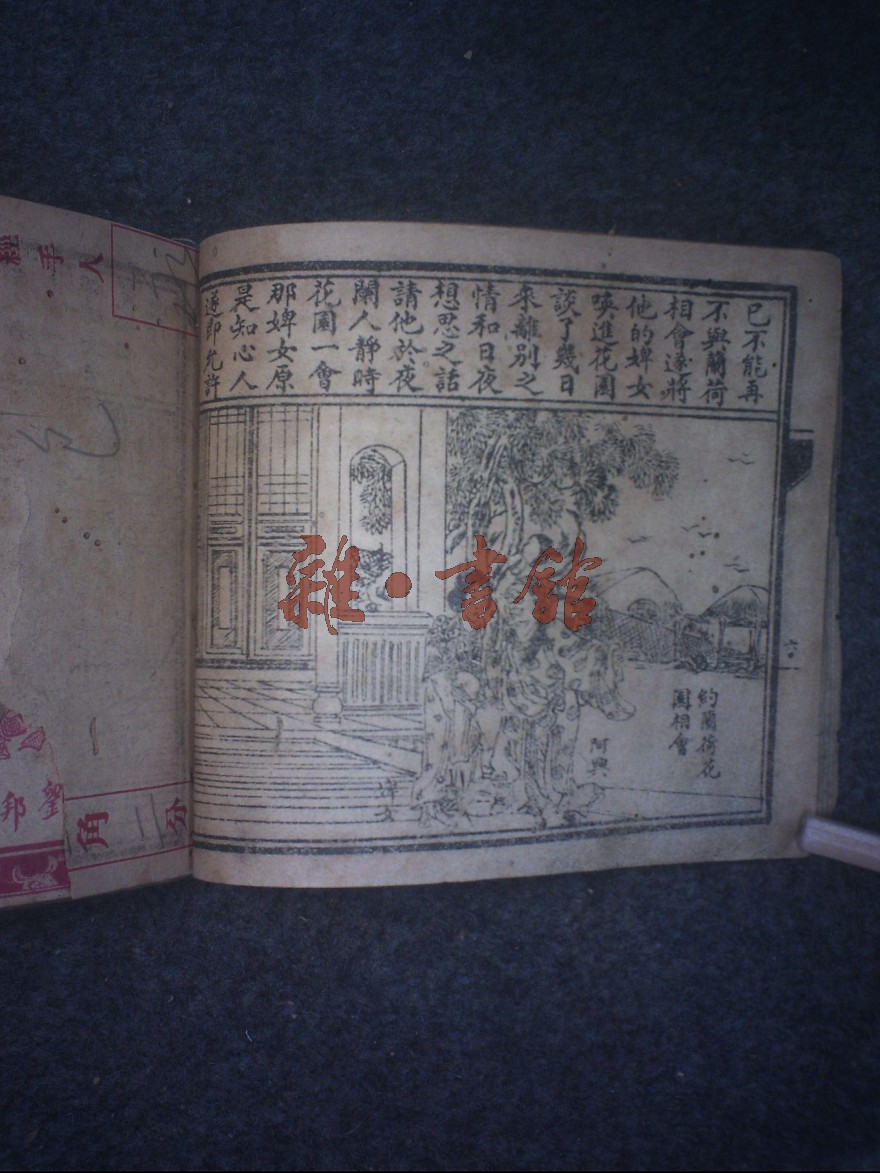 已不能再
不與蘭荷
相會遂將
他的婢女
喚進花園
談了幾日
來離別之
情和日夜
想思之話
請他於夜
闌人靜時
花園一會
那婢女原
是知心人
遂即允許
約蘭荷花
園相會
阿興
婢女
六
雜·書館
經手人
角
分
劉
邦